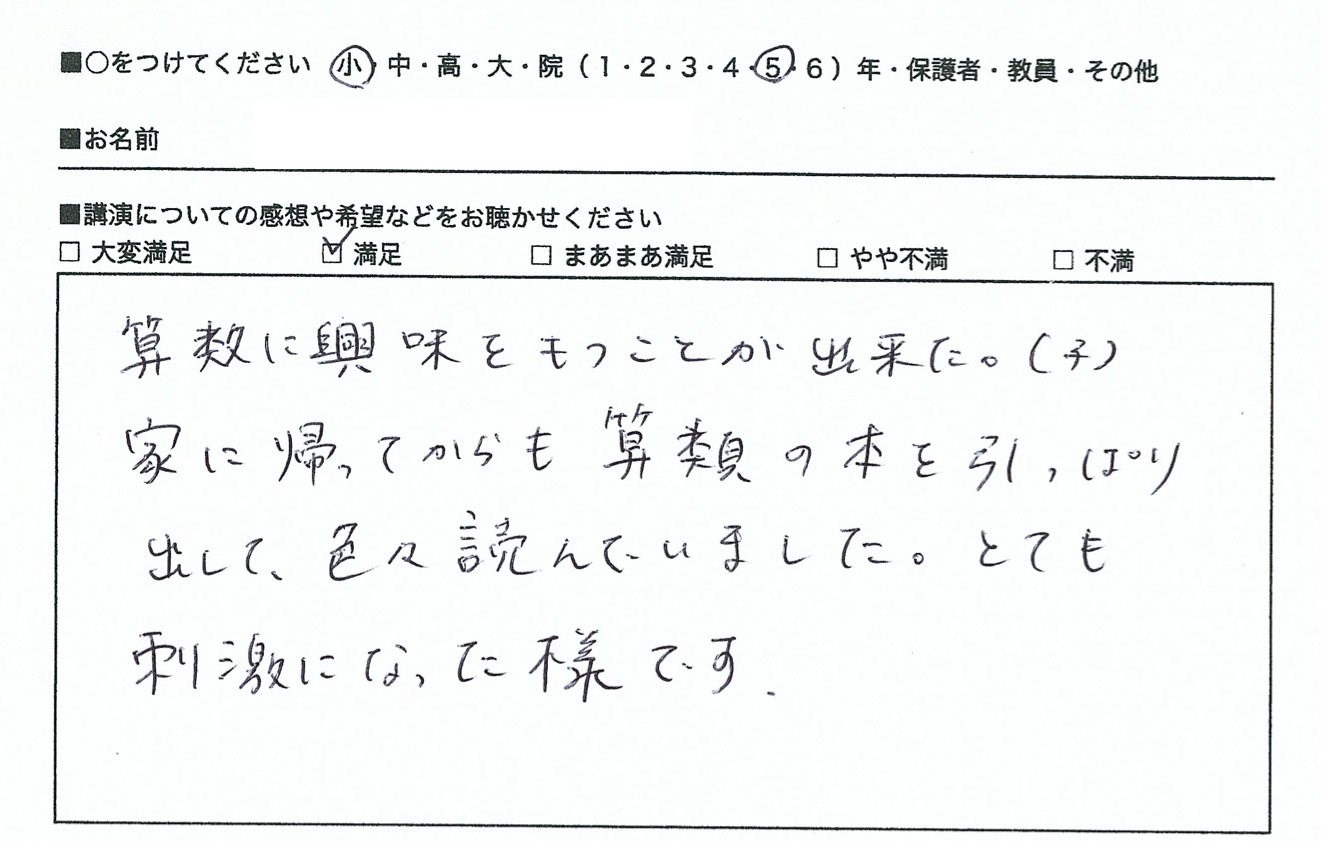 ■○をつけてください 小・中・高・大・院（1・2・3・4・5・6）年・保護者・教員・その他
■お名前
■講演についての感想や希望などをお聴かせください
□ 大変満足 ☑ 満足 □ まあまあ満足 □ やや不満 □ 不満
算数に興味をもつことが出来た。（子）
家に帰ってからも算類の本を引っぱり
出して、色々読んでいました。とても
刺激になった様です.